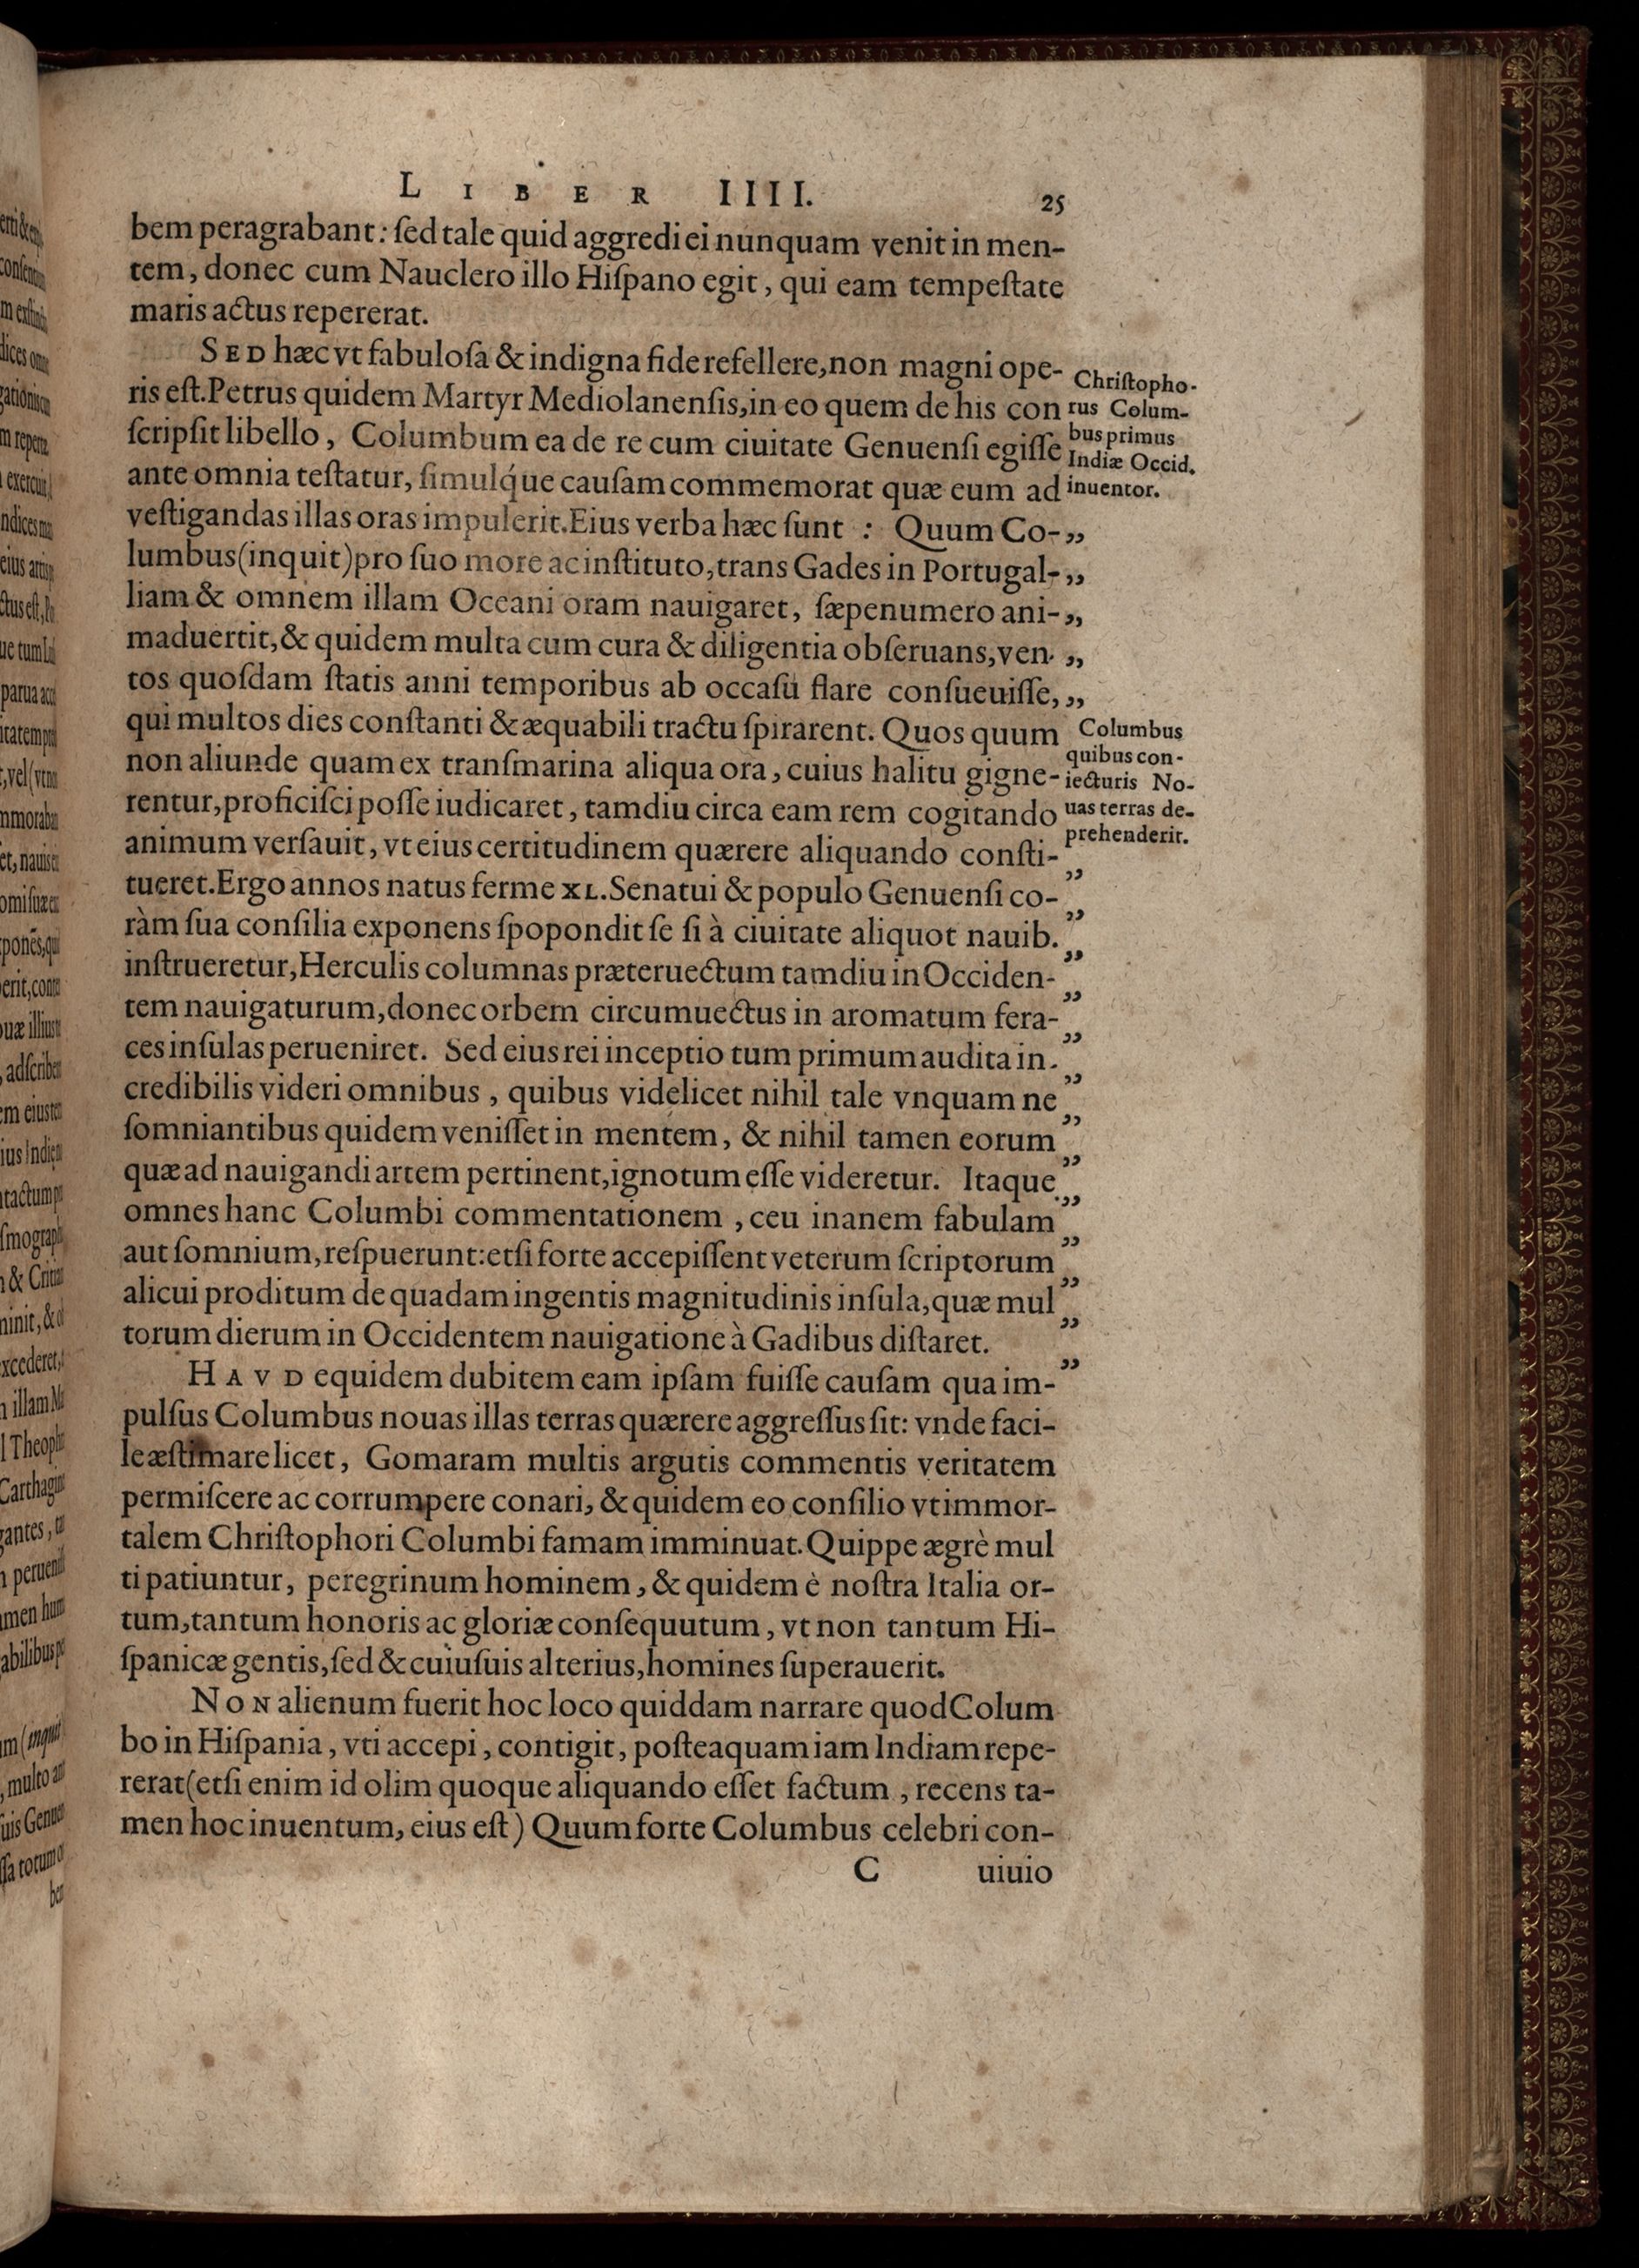 LIBER IIII. 25
bem peragrabant: ſed tale quid aggredi ei nunquam venit in men-
tem, donec cum Nauclero illo Hiſpano egit, qui eam tempeſtate
maris actus repererat.
SED hæc vt fabuloſa & indigna fide refellere, non magni ope-
ris eſt. Petrus quidem Martyr Mediolanenſis, in eo quem de his con
ſcripſit libello, Columbum ea de re cum ciuitate Genuenſi egiſſe
ante omnia teſtatur, ſimulq́ue cauſam commemorat quæ eum ad
veſtigandas illas oras impulerit. Eius verba hæc ſunt : Quum Co- „
lumbus (inquit) pro ſuo more ac inſtituto, trans Gades in Portugal- „
liam & omnem illam Oceani oram nauigaret, ſæpenumero ani- „
maduertit, & quidem multa cum cura & diligentia obſeruans, ven- „
tos quoſdam ſtatis anni temporibus ab occaſu flare conſueuiſſe, „
qui multos dies conſtanti & æquabili tractu ſpirarent. Quos quum
non aliunde quam ex tranſmarina aliqua ora, cuius halitu gigne-
rentur, proficiſci poſſe iudicaret, tamdiu circa eam rem cogitando
animum verſauit, vt eius certitudinem quærere aliquando conſti-
tueret. Ergo annos natus ferme XL. Senatui & populo Genuenſi co- „
ràm ſua conſilia exponens ſpopondit ſe ſi à ciuitate aliquot nauib. „
inſtrueretur, Herculis columnas præteruectum tamdiu in Occiden- „
tem nauigaturum, donec orbem circumuectus in aromatum fera- „
ces inſulas perueniret. Sed eius rei inceptio tum primum audita in- „
credibilis videri omnibus, quibus videlicet nihil tale vnquam ne „
ſomniantibus quidem veniſſet in mentem, & nihil tamen eorum „
quæ ad nauigandi artem pertinent, ignotum eſſe videretur. Itaque „
omnes hanc Columbi commentationem, ceu inanem fabulam „
aut ſomnium, reſpuerunt: etſi forte accepiſſent veterum ſcriptorum „
alicui proditum de quadam ingentis magnitudinis inſula, quæ mul „
torum dierum in Occidentem nauigatione à Gadibus diſtaret. „
HAVD equidem dubitem eam ipſam fuiſſe cauſam qua im- „
pulſus Columbus nouas illas terras quærere aggreſſus ſit: vnde faci-
le æſtimare licet, Gomaram multis argutis commentis veritatem
permiſcere ac corrumpere conari, & quidem eo conſilio vt immor-
talem Chriſtophori Columbi famam imminuat. Quippe ægrè mul
ti patiuntur, peregrinum hominem, & quidem è noſtra Italia or-
tum, tantum honoris ac gloriæ conſequutum, vt non tantum Hi-
ſpanicæ gentis, ſed & cuiuſuis alterius, homines ſuperauerit.
NON alienum fuerit hoc loco quiddam narrare quod Colum
bo in Hiſpania, vti accepi, contigit, poſteaquam iam Indiam repe-
rerat (etſi enim id olim quoque aliquando eſſet factum, recens ta-
men hoc inuentum, eius eſt) Quum forte Columbus celebri con-
C uiuio
Chriſtopho-
rus Colum-
bus primus
Indiæ Occid.
inuentor.
Columbus
quibus con-
iecturis No-
uas terras de-
prehenderit.